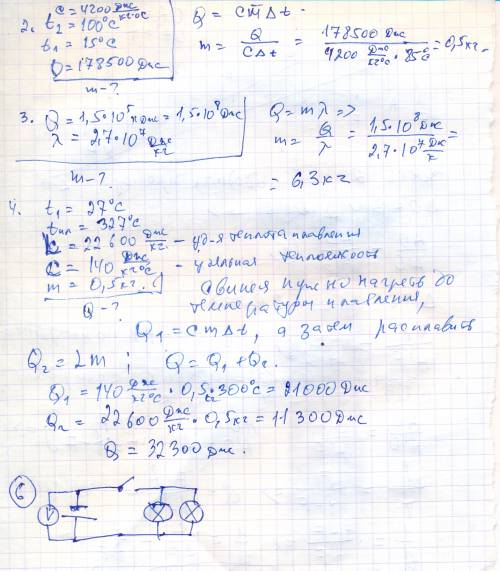 c = 4200 Дж/кг·°C
2. t₂ = 100°C
t₁ = 15°C
Q = 178500 Дж
m - ?
Q = cmΔt
m = Q/cΔt = 178500 Дж / 4200 Дж/кг°C · 85°C = 0,5 кг
3. Q = 1,5·10⁵ кДж = 1,5·10⁸ Дж
λ = 2,7·10⁷ Дж/кг
m - ?
Q = mλ =>
m = Q/λ = 1,5·10⁸ Дж / 2,7·10⁷ Дж/к =
= 6,3 кг
4. t₁ = 27°C
tпл = 327°C
L = 22600 Дж/кг - уд-я теплота плавления
c = 140 Дж/кг°C - удельная теплоемкость
m = 0,5 кг.
Q - ?
свинец нужно нагреть до
температуры плавления,
Q₁ = cmΔt, а затем расплавить
Q₂ = Lm ; Q = Q₁ + Q₂.
Q₁ = 140 Дж/кг·°C · 0,5 кг · 300°C = 21000 Дж
Q₂ = 22600 Дж/кг · 0,5 кг = 11300 Дж
Q = 32300 Дж.
6
V